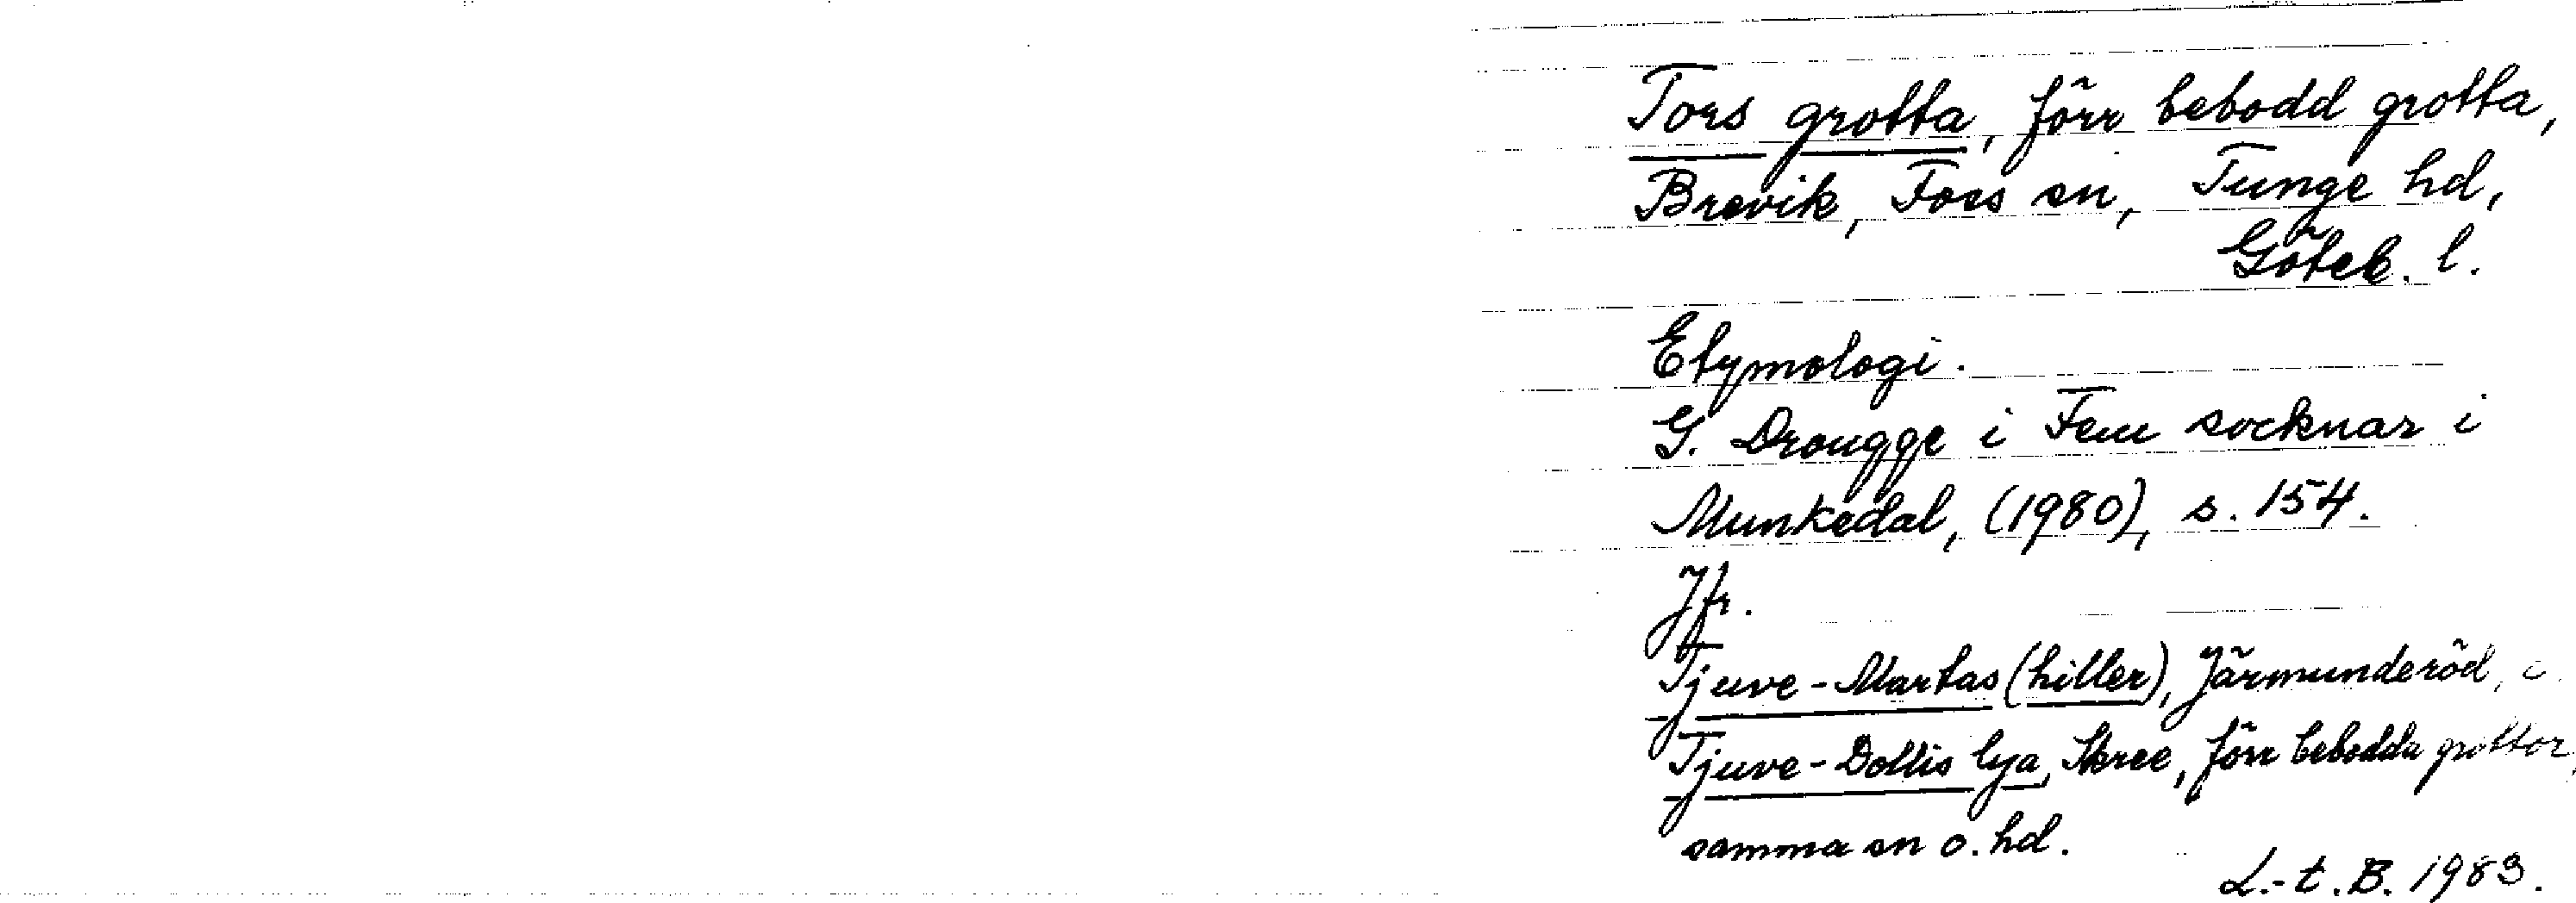 Tors grotta, förr bebodd grotta,
Brevik, Foss sn, Tunge hd,
Göteb. l.
Etymologi.
G. Drougge i Fem socknar i
Munkedal, (1980), s. 154.
Jfr.
Tjuve-Martas (hiller), Järmunderöd, o
Tjuve-Dollis lya, Skree, förr bebodda grottor,
samma sn o. hd.
L.-t. B. 1983.